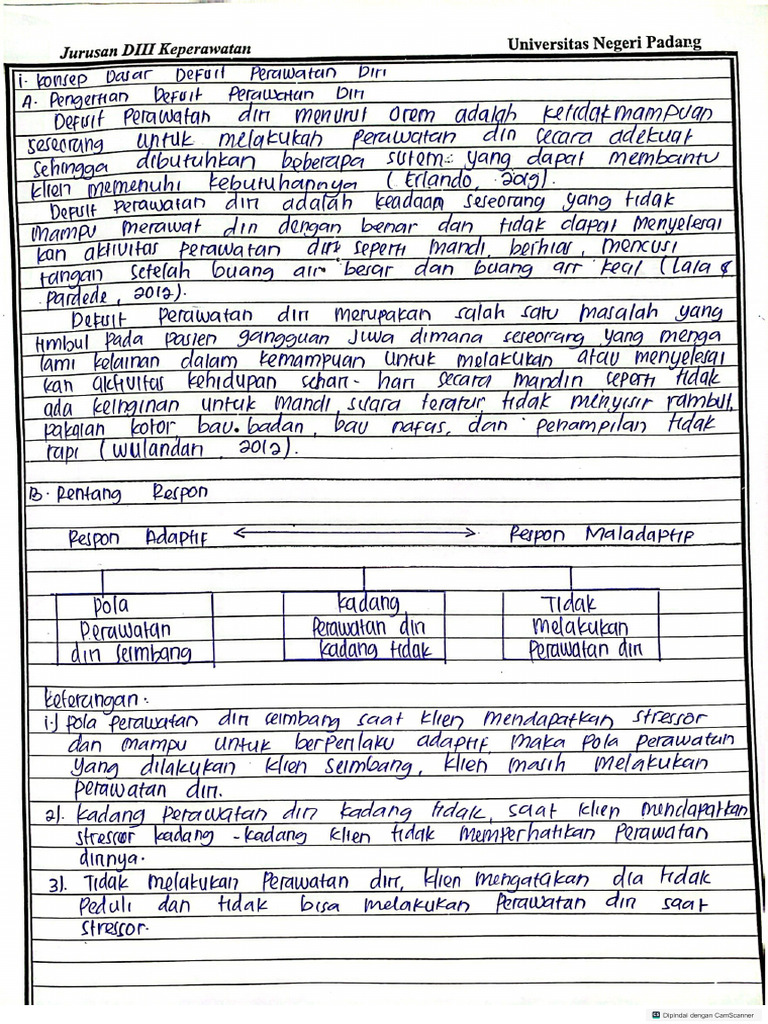 Jurusan DIII Keperawatan
Universitas Negeri Padang
1. Konsep Dasar Defisit Perawatan Diri
A. Pengertian Defisit Perawatan Diri
Defisit Perawatan diri menurut Orem adalah ketidakmampuan
seseorang untuk melakukan perawatan diri secara adekuat
sehingga dibutuhkan beberapa sistem yang dapat membantu
klien memenuhi kebutuhannya (Erlando, 2019).
Defisit perawatan diri adalah keadaan seseorang yang tidak
mampu merawat diri dengan benar dan tidak dapat menyelesai
kan aktivitas perawatan diri seperti mandi, berhias, mencusi
tangan setelah buang air besar dan buang air kecil (Lala &
Pardede, 2012).
Defisit perawatan diri merupakan salah satu masalah yang
timbul pada pasien gangguan jiwa dimana seseorang yang menga
lami kelainan dalam kemampuan untuk melakukan atau menyelesai
kan aktivitas kehidupan sehari-hari secara mandiri seperti tidak
ada keinginan untuk mandi, suara teratur tidak menyisir rambut,
pakaian kotor, bau badan, bau nafas, dan penampilan tidak
rapi (Wulandari, 2012).
B. Rentang Respon
Respon Adaptif
Respon Maladaptif
Pola
Perawatan
diri seimbang
Kadang
Perawatan diri
kadang tidak
Tidak
Melakukan
Perawatan diri
Keterangan:
1.) Pola perawatan diri seimbang saat klien mendapatkan stressor
dan mampu untuk berperilaku adaptif, maka pola perawatan
yang dilakukan klien seimbang, klien masih melakukan
perawatan diri.
2). Kadang perawatan diri kadang tidak, saat klien mendapatkan
stressor kadang-kadang klien tidak memperhatikan perawatan
dirinya.
3). Tidak melakukan perawatan diri, klien mengatakan dia tidak
peduli dan tidak bisa melakukan perawatan diri saat
stressor.
Dipindai dengan CamScanner